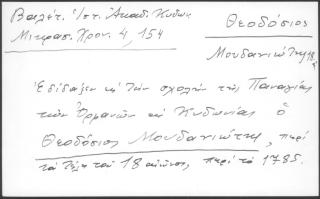 Βαλέτ. Ἱστ. Ἀκαδ. Κυδων.
Μικρασ. Χρον. 4, 154
Θεοδόσιος
Μουδανιώτης
Ἐδίδαξεν εἰς τὴν σχολὴν τῆς Παναγίας
τῶν Ὀρφανῶν εἰς Κυδωνίας ὁ
Θεοδόσιος Μουδανιώτης, περὶ
τὰ τέλη τοῦ 18 αἰῶνος, περὶ τὸ 1785.